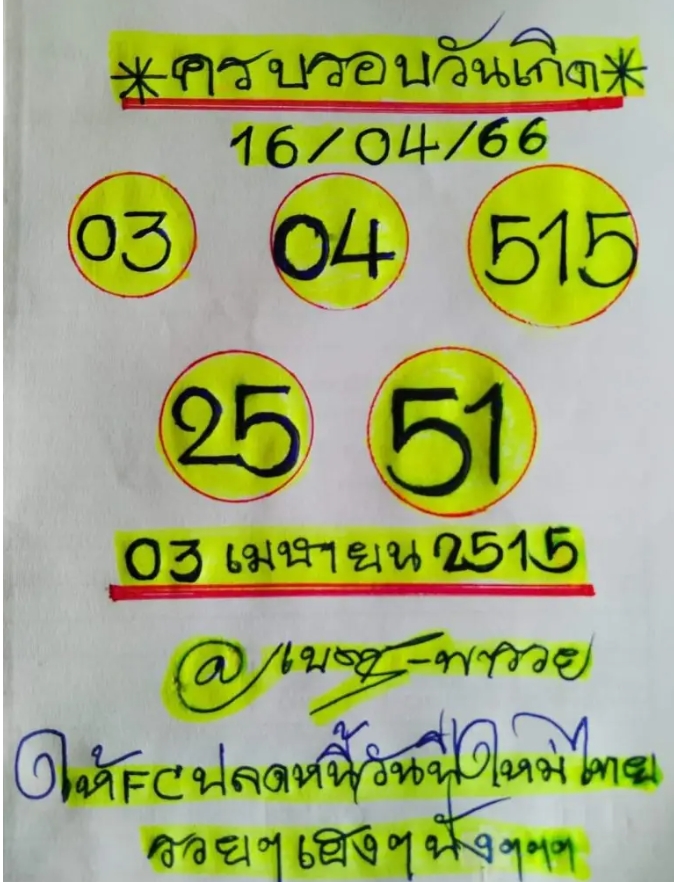 *ครบรอบวันเกิด*
16/04/66
03 04 515
25 51
03 เมษายน 2515
@
ให้FCปลดหนี้วันปีใหม่ไทย
รวยๆเฮงๆปังๆๆๆ